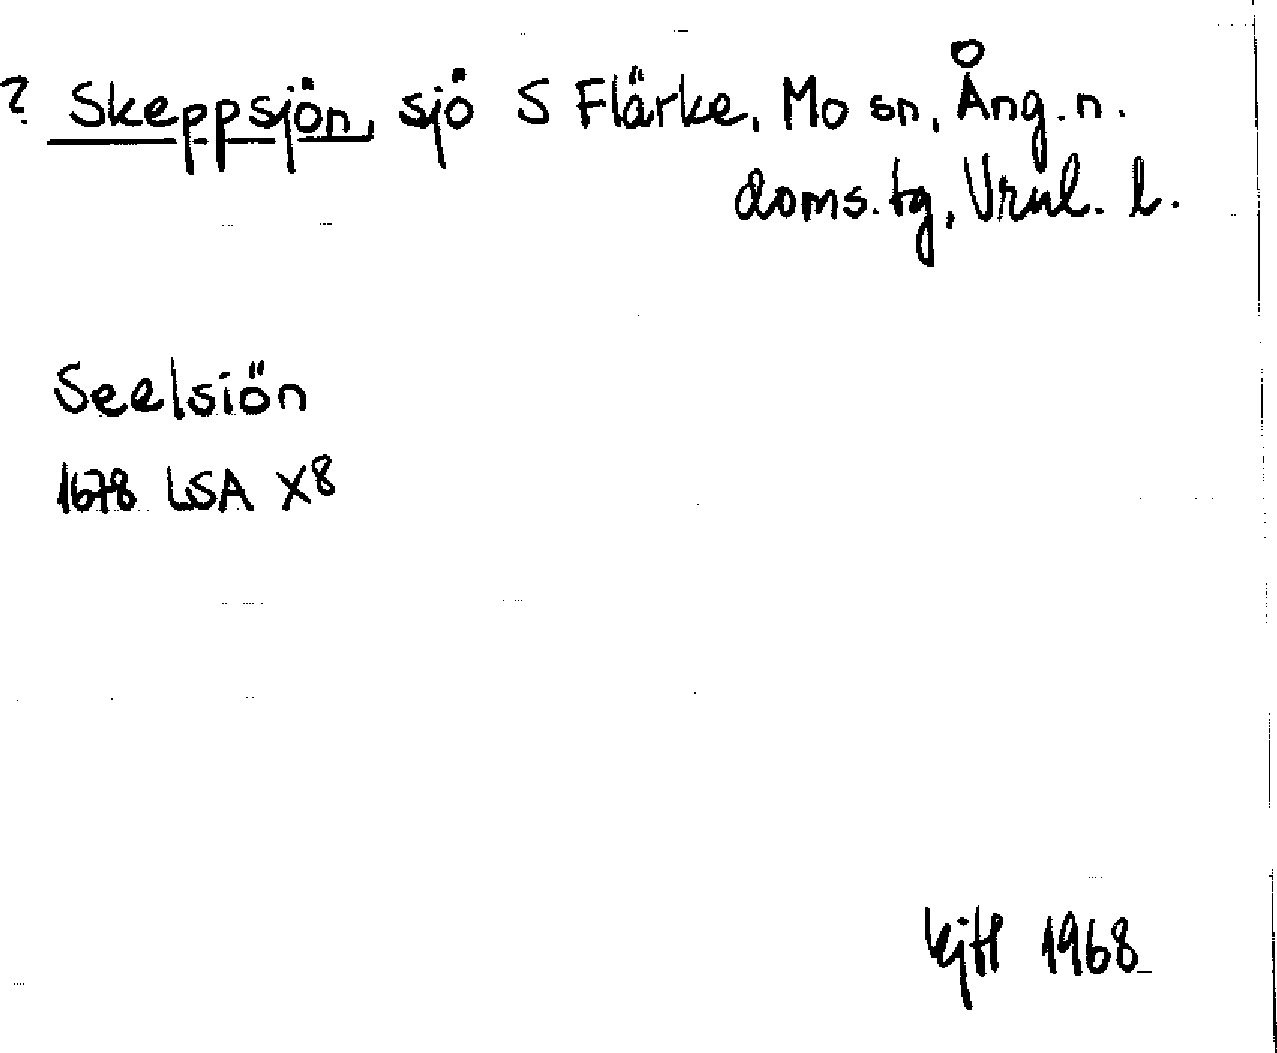 ? Skeppsjön, sjö S Flärke, Mo sn, Ång. n.
doms. tg, Vrnl. l.
Seelsiön
1678 LSA X8
1968